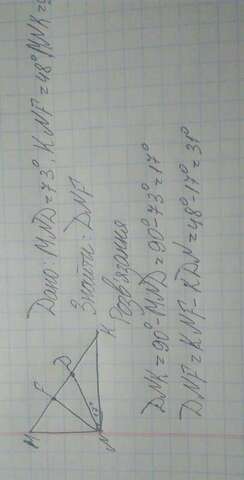 Дано: MND=73°, KNF=48° MNK=9
Знайти: DNF
Розв'язання
DNK=90°-MND=90°-73°=17°
DNF=KNF-KDN=48°-17°=31°
M
F
D
K
N